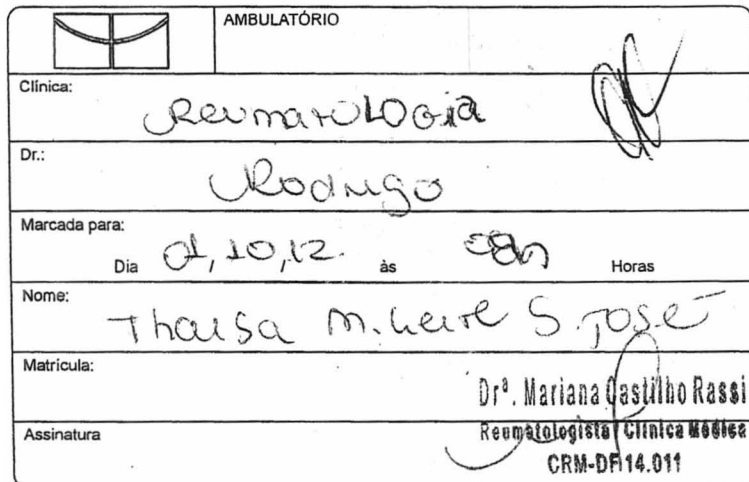 AMBULATÓRIO
Clínica:
Reumatologia
Dr.:
Rodrigo
Marcada para:
Dia 01,10,12 às 08h Horas
Nome:
Thaisa M. Leite S. José
Matrícula:
Drª. Mariana Castilho Rassi
Assinatura
Reumatologista / Clínica Médica
CRM-DF 14.011